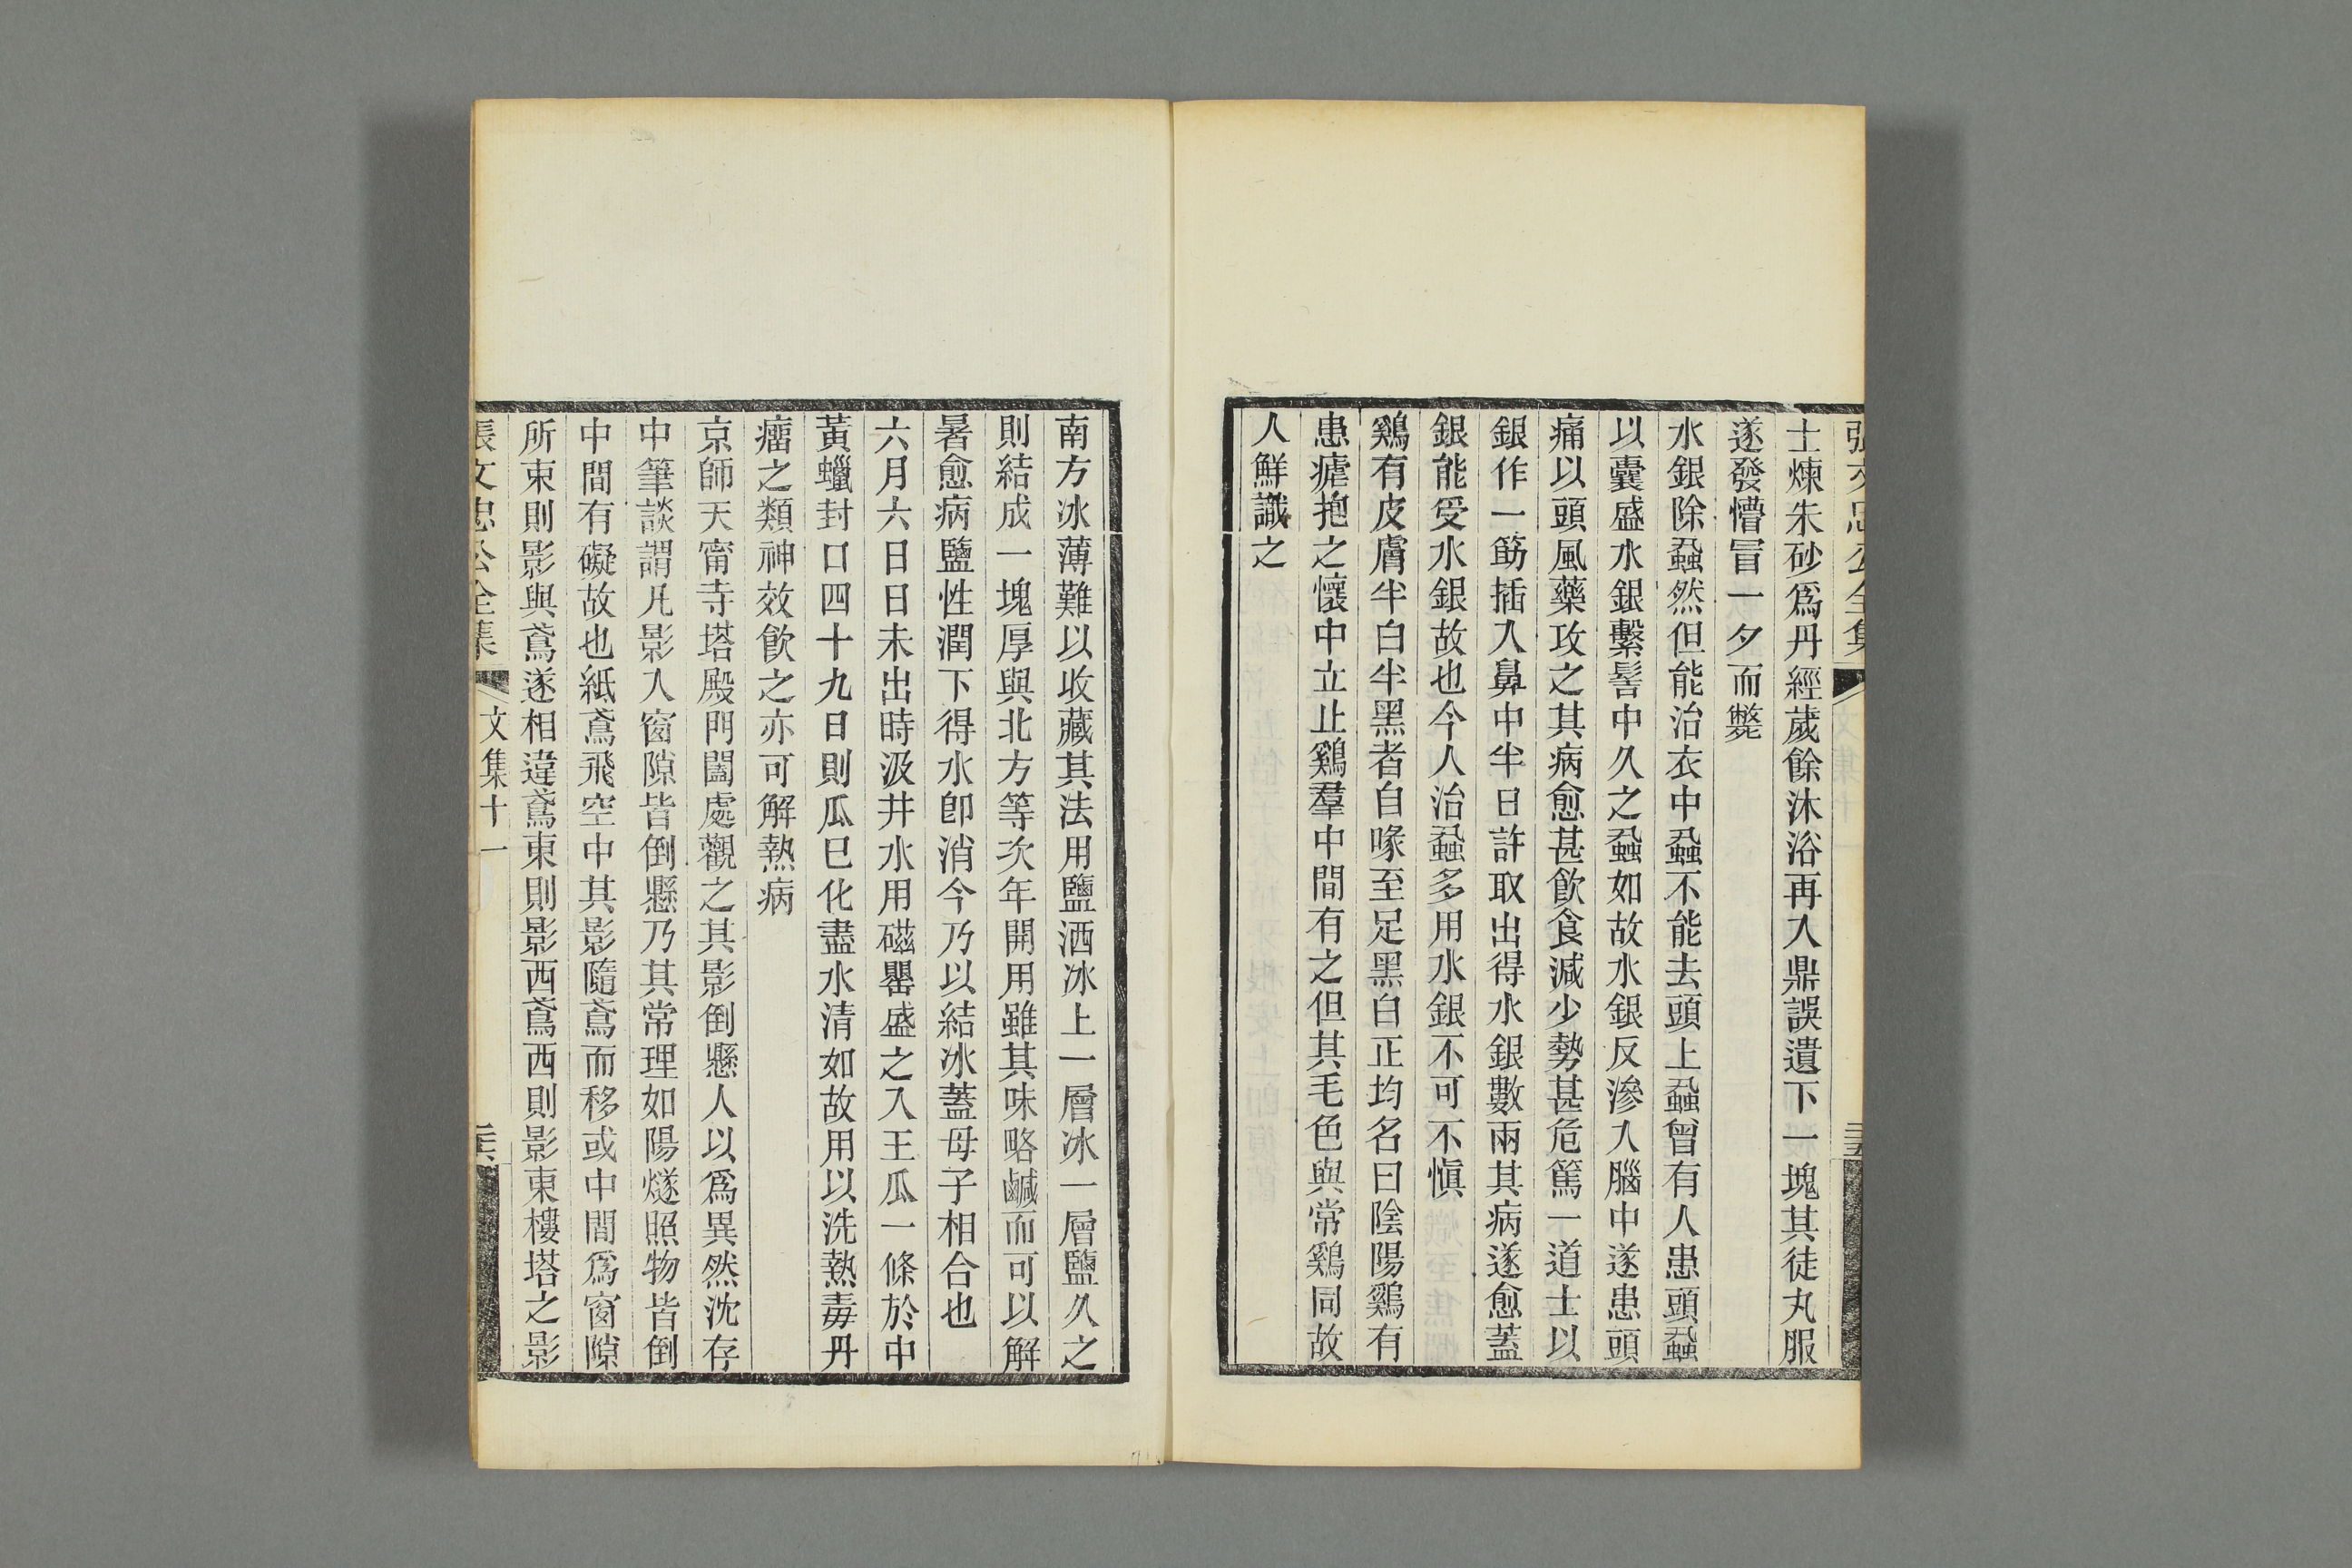 張文忠公全集
士煉朱砂爲丹經歲餘沐浴再入鼎誤遺下一塊其徒丸服
遂發懵冒一夕而斃
水銀除蝨然但能治衣中蝨不能去頭上蝨曾有人患頭蝨
以囊盛水銀繫髻中久之蝨如故水銀反滲入腦中遂患頭
痛以頭風藥攻之其病愈甚飲食減少勢甚危篤一道士以
銀作一筯插入鼻中半日許取出得水銀數兩其病遂愈蓋
銀能受水銀故也今人治蝨多用水銀不可不慎
鷄有皮膚半白半黑者自喙至足黑白正均名曰陰陽鷄有
患瘧抱之懷中立止鷄羣中間有之但其毛色與常鷄同故
人鮮識之
南方冰薄難以收藏其法用鹽洒冰上一層冰一層鹽久之
則結成一塊厚與北方等次年開用雖其味略鹹而可以解
暑愈病鹽性潤下得水卽消今乃以結冰蓋母子相合也
六月六日日未出時汲井水用磁罌盛之入王瓜一條於中
黃蠟封口四十九日則瓜已化盡水清如故用以洗熱毒丹
瘤之類神效飮之亦可解熱病
京師天甯寺塔殿門闔處觀之其影倒懸人以爲異然沈存
中筆談謂凡影入窗隙皆倒懸乃其常理如陽燧照物皆倒
中間有礙故也紙鳶飛空中其影隨鳶而移或中間爲窗隙
所束則影與鳶遂相違鳶東則影西鳶西則影東樓塔之影
張文忠公全集 文集十一